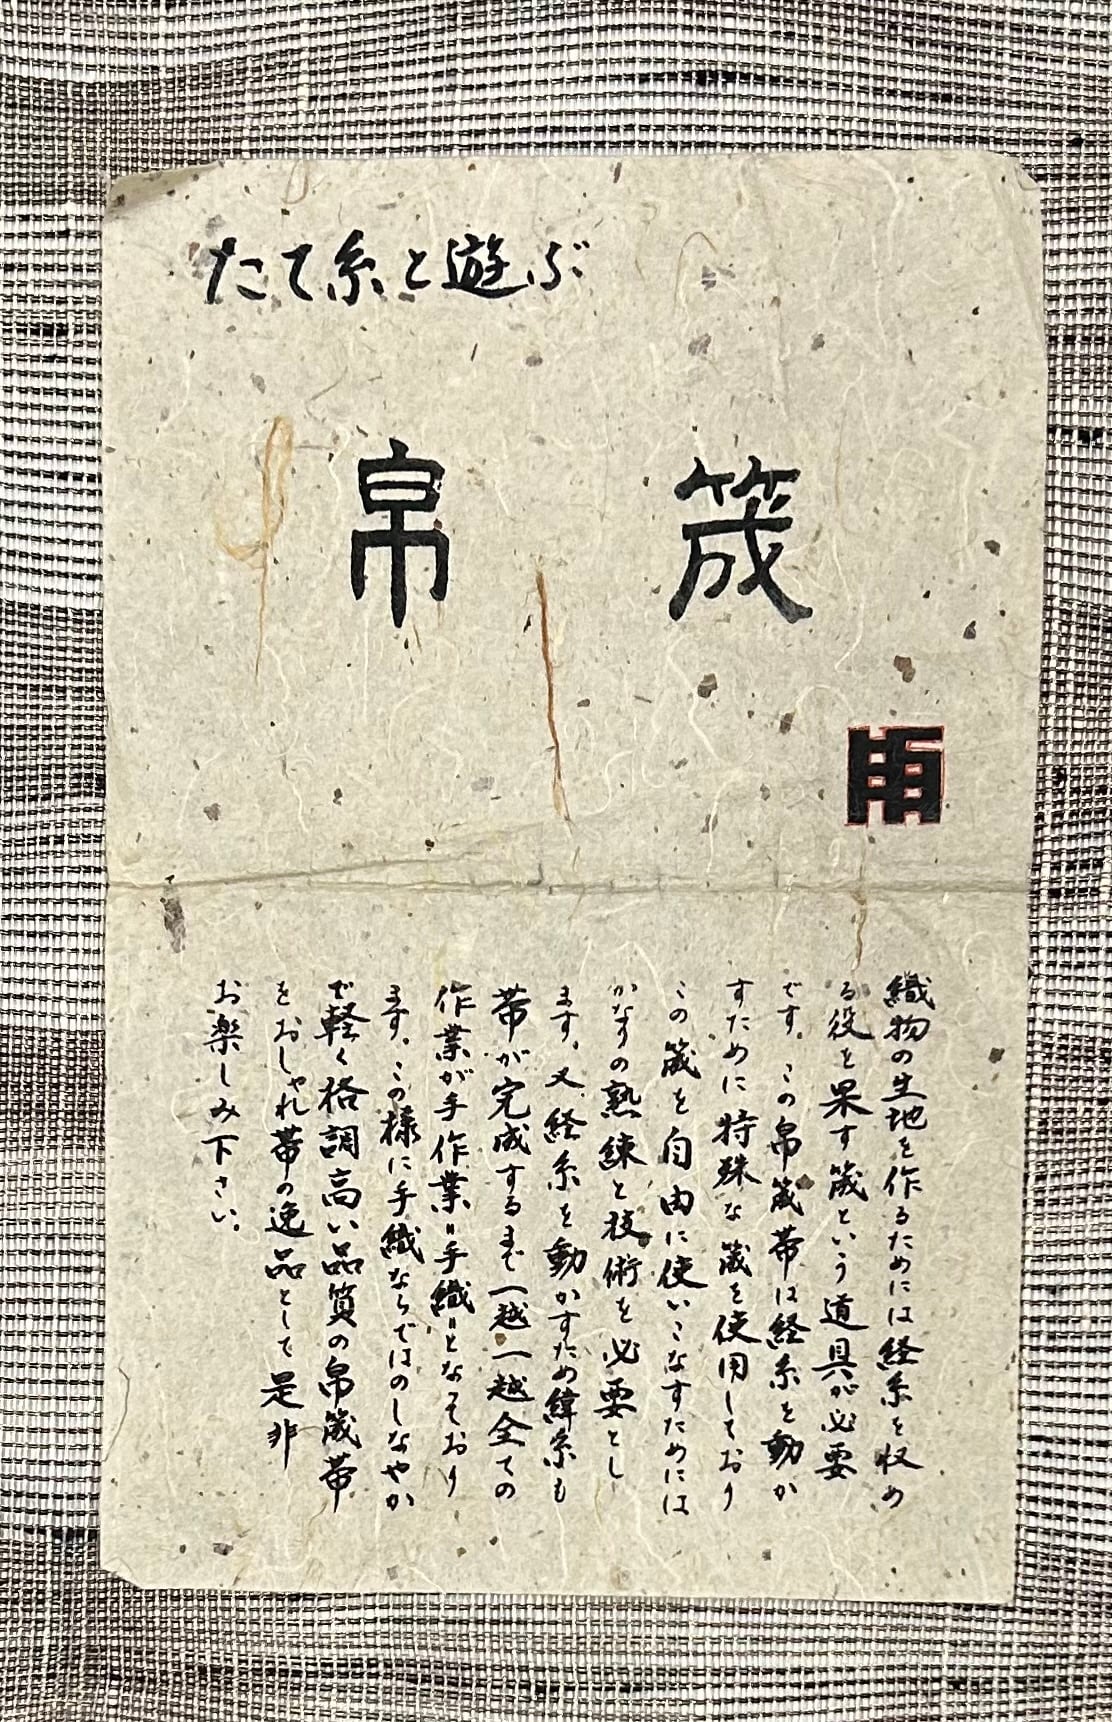 たて糸と遊ぶ
帛筬
織物の生地を作るためには経糸を収め
る役を果す筬という道具が必要
です。この帛筬帯は経糸を動か
すために特殊な筬を使用しており
この筬を自由に使いこなすためには
かなりの熟練と技術を必要とし
ます。又経糸を動かすため緯糸も
帯が完成するまで一越一越全ての
作業が手作業〝手織〟となっており
ます。この様に手織ならではのしなやか
で軽く格調高い品質の帛筬帯
をおしゃれ帯の逸品として是非
お楽しみ下さい。